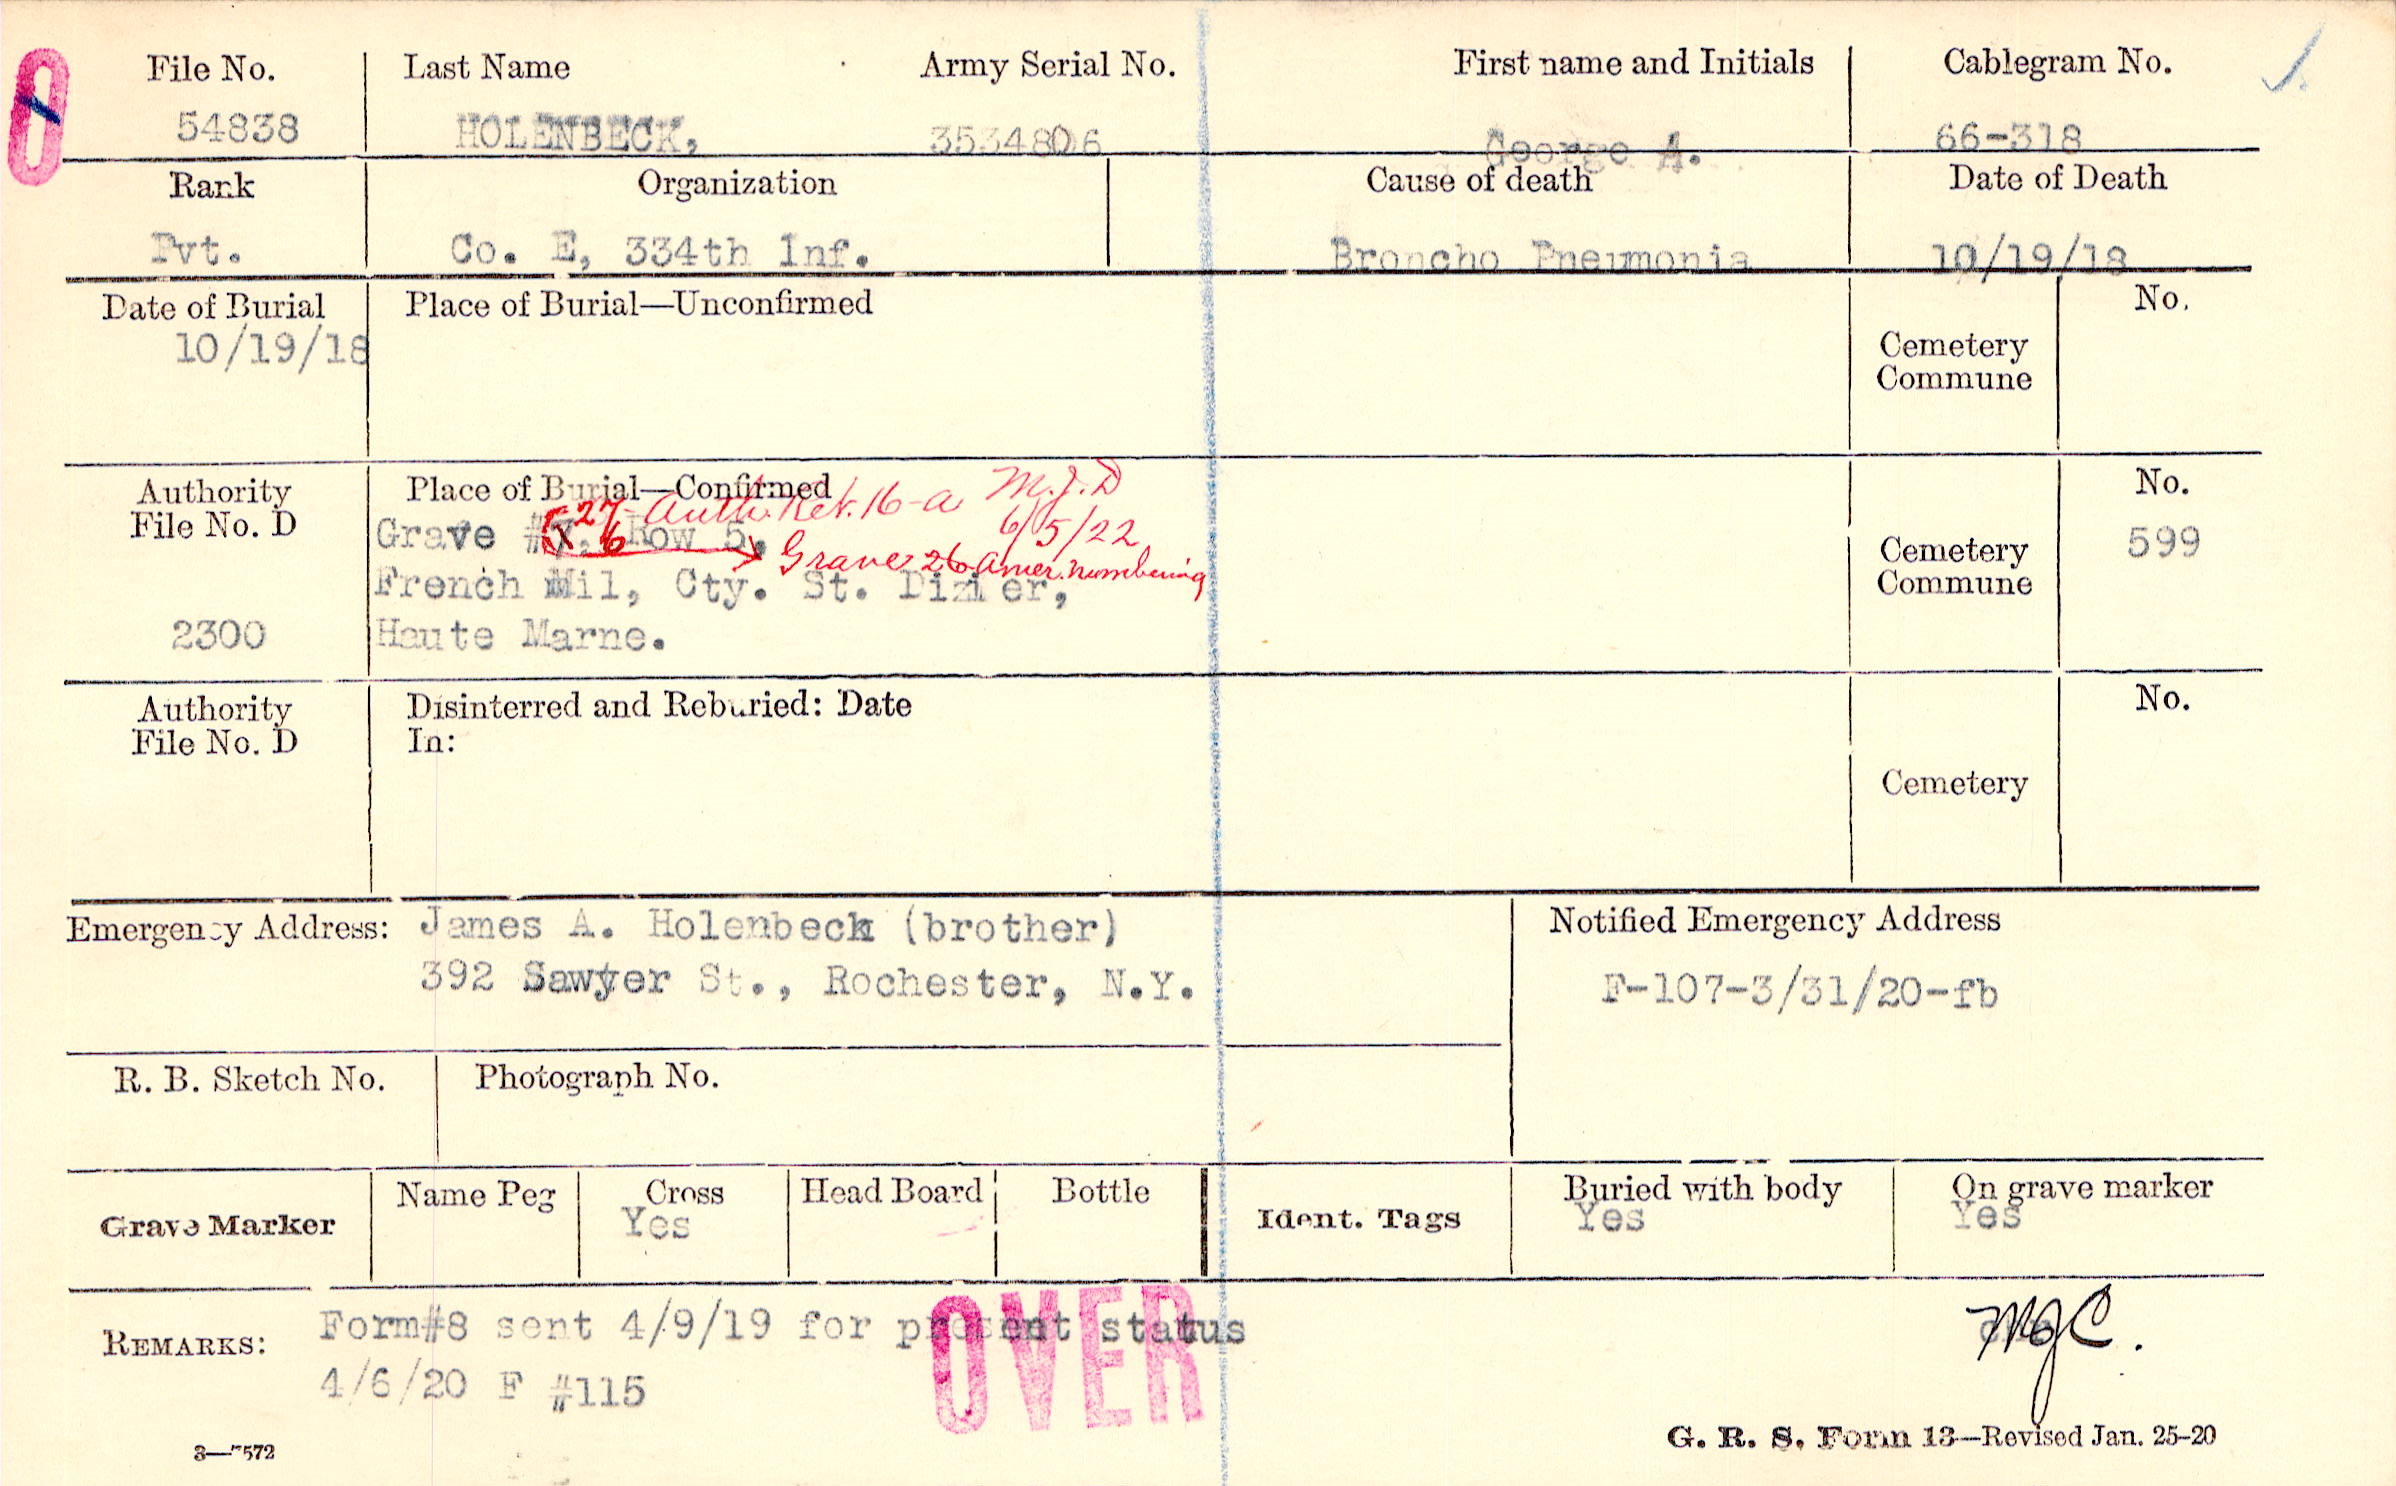 O
File No. Last Name Army Serial No. First name and Initials Cablegram No.
54838 HOLENBECK, 3534806 George A. 66-318
Rank Organization Cause of death Date of Death
Pvt. Co. E, 334th Inf. Broncho Pneumonia 10/19/18
Date of Burial Place of Burial—Unconfirmed No.
10/19/18
Cemetery
Commune
Authority Place of Burial—Confirmed M.J.D No.
File No. D 27 - Auth. Ret. 16-a 6/5/22
Grave # 6 Row 5. Cemetery 599
Grave 26 Amer. numbering
French Mil, Cty. St. Dizier, Commune
2300 Haute Marne.
Authority Disinterred and Reburied: Date No.
File No. D In:
Cemetery
Emergency Address: James A. Holenbeck (brother) Notified Emergency Address
392 Sawyer St., Rochester, N.Y. F-107-3/31/20-fb
R. B. Sketch No. Photograph No.
Name Peg Cross Head Board Bottle Buried with body On grave marker
Grave Marker Yes Ident. Tags Yes Yes
REMARKS: Form#8 sent 4/9/19 for present status
4/6/20 F #115
OVER
MJC.
3—7572 G. R. S. Form 13—Revised Jan. 25-20